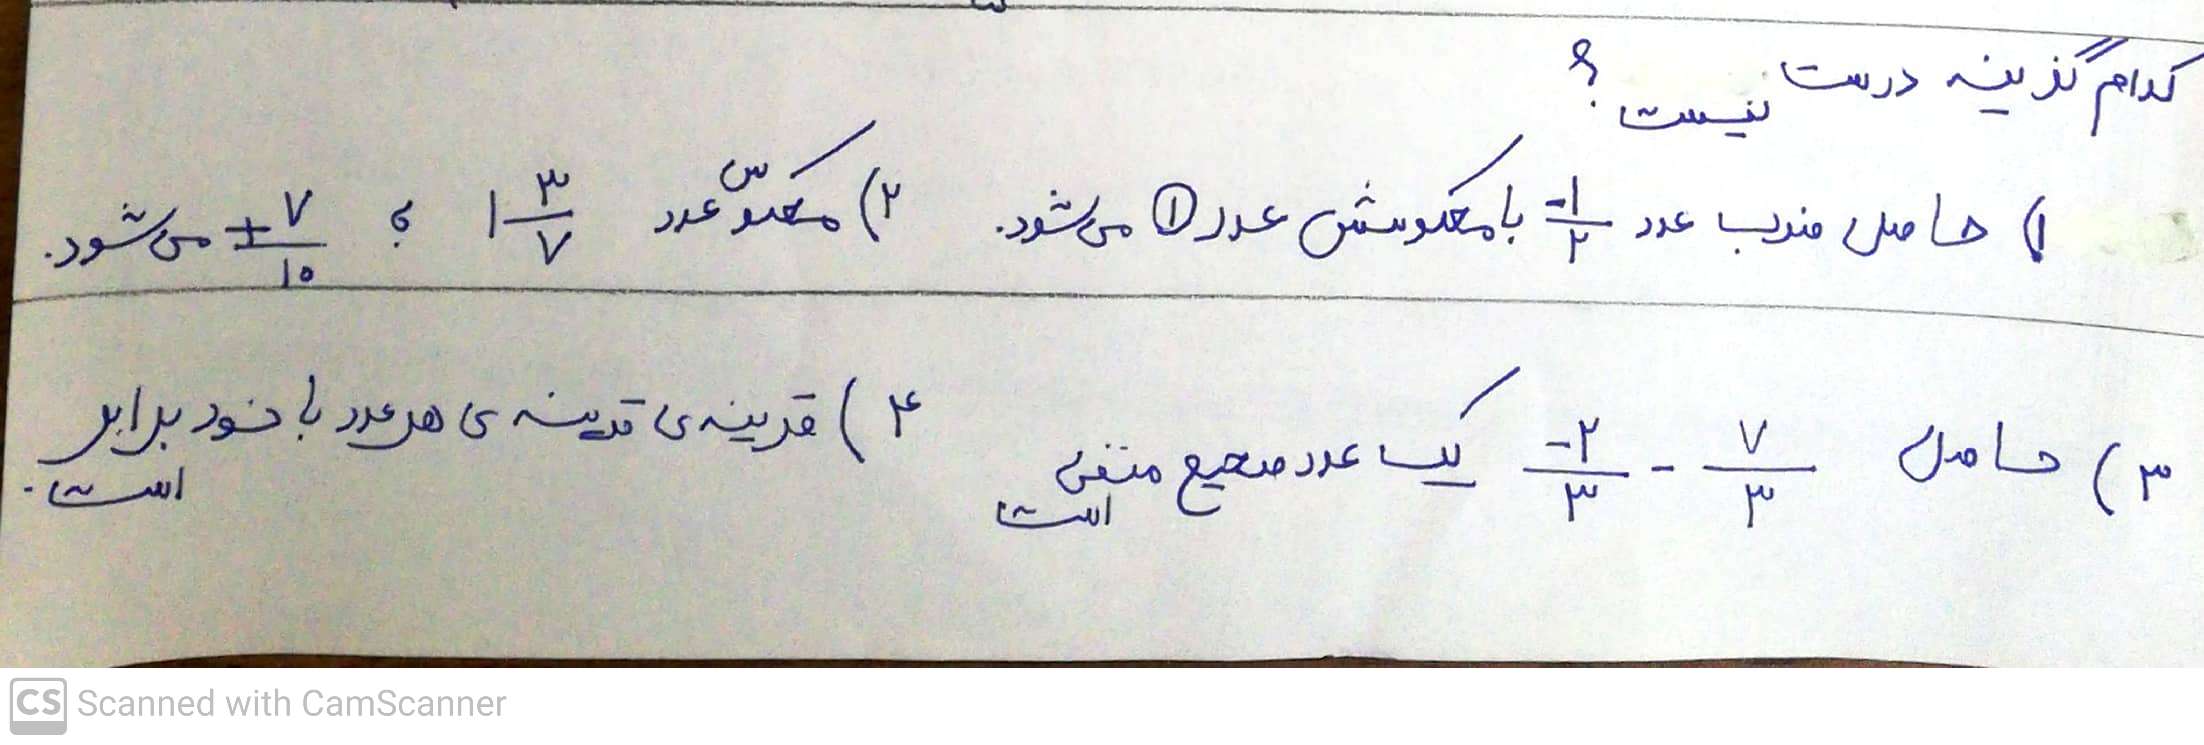 کدام گزینه درست نیست؟
۱) حاصل ضرب عدد -۱/۲ با معکوسش عدد ۱ می‌شود. ۲) معکوس عدد ۱ ۳/۷ ؛ +۷/۱۰ می‌شود.
۳) حاصل ۷/۳ - -۲/۳ یک عدد صحیح منفی است ۴) قرینه‌ی قرینه‌ی هر عدد با خود برابر است.
Scanned with CamScanner
CS